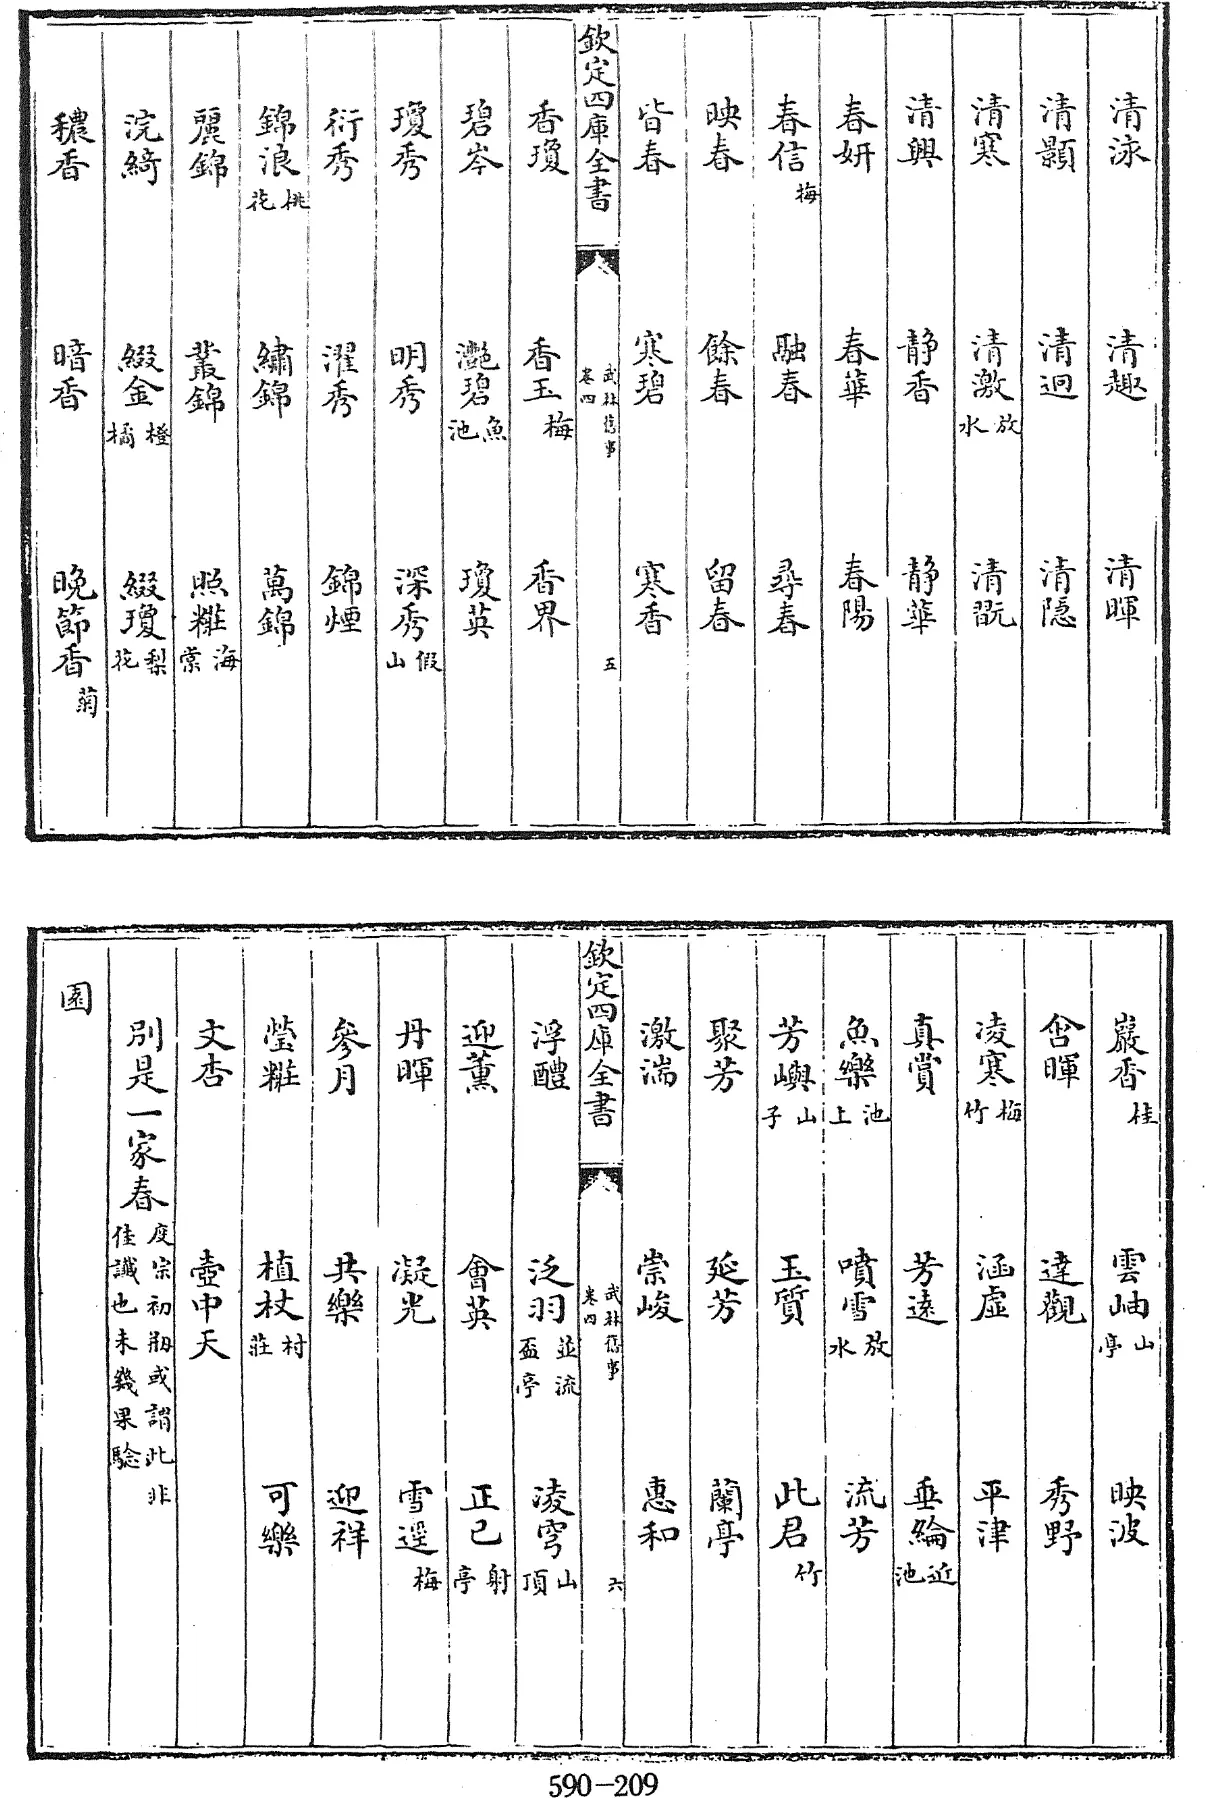 清泳 清趣 清暉
清顥 清迥 清隱
清寒 清激放水 清㲹
清興 静香 静華
春妍 春華 春陽
春信梅 融春 尋春
映春 餘春 留春
皆春 寒碧 寒香
欽定四庫全書 武林舊事 卷四 五
香瓊 香玉梅 香界
碧岑 灔碧魚池 瓊英
瓊秀 明秀 深秀假山
衍秀 濯秀 錦煙
錦浪桃花 繡錦 萬錦
麗錦 叢錦 照糚海棠
浣綺 綴金橙橘 綴瓊梨花
穠香 暗香 晚節香菊
巖香桂 雲岫山亭 映波
含暉 達觀 秀野
凌寒梅竹 涵虚 平津
真賞 芳遠 垂綸近池
魚樂池上 噴雪放水 流芳
芳嶼山子 玉質 此君竹
聚芳 延芳 蘭亭
激湍 崇峻 惠和
欽定四庫全書 武林舊事 卷四 六
浮醴 泛羽並流盃亭 凌穹山頂
迎薰 會英 正己射亭
丹暉 凝光 雪逕梅
參月 共樂 迎祥
瑩糚 植杖村莊 可樂
文杏 壺中天
別是一家春度宗初剏或謂此非佳讖也未幾果驗
園
590-209